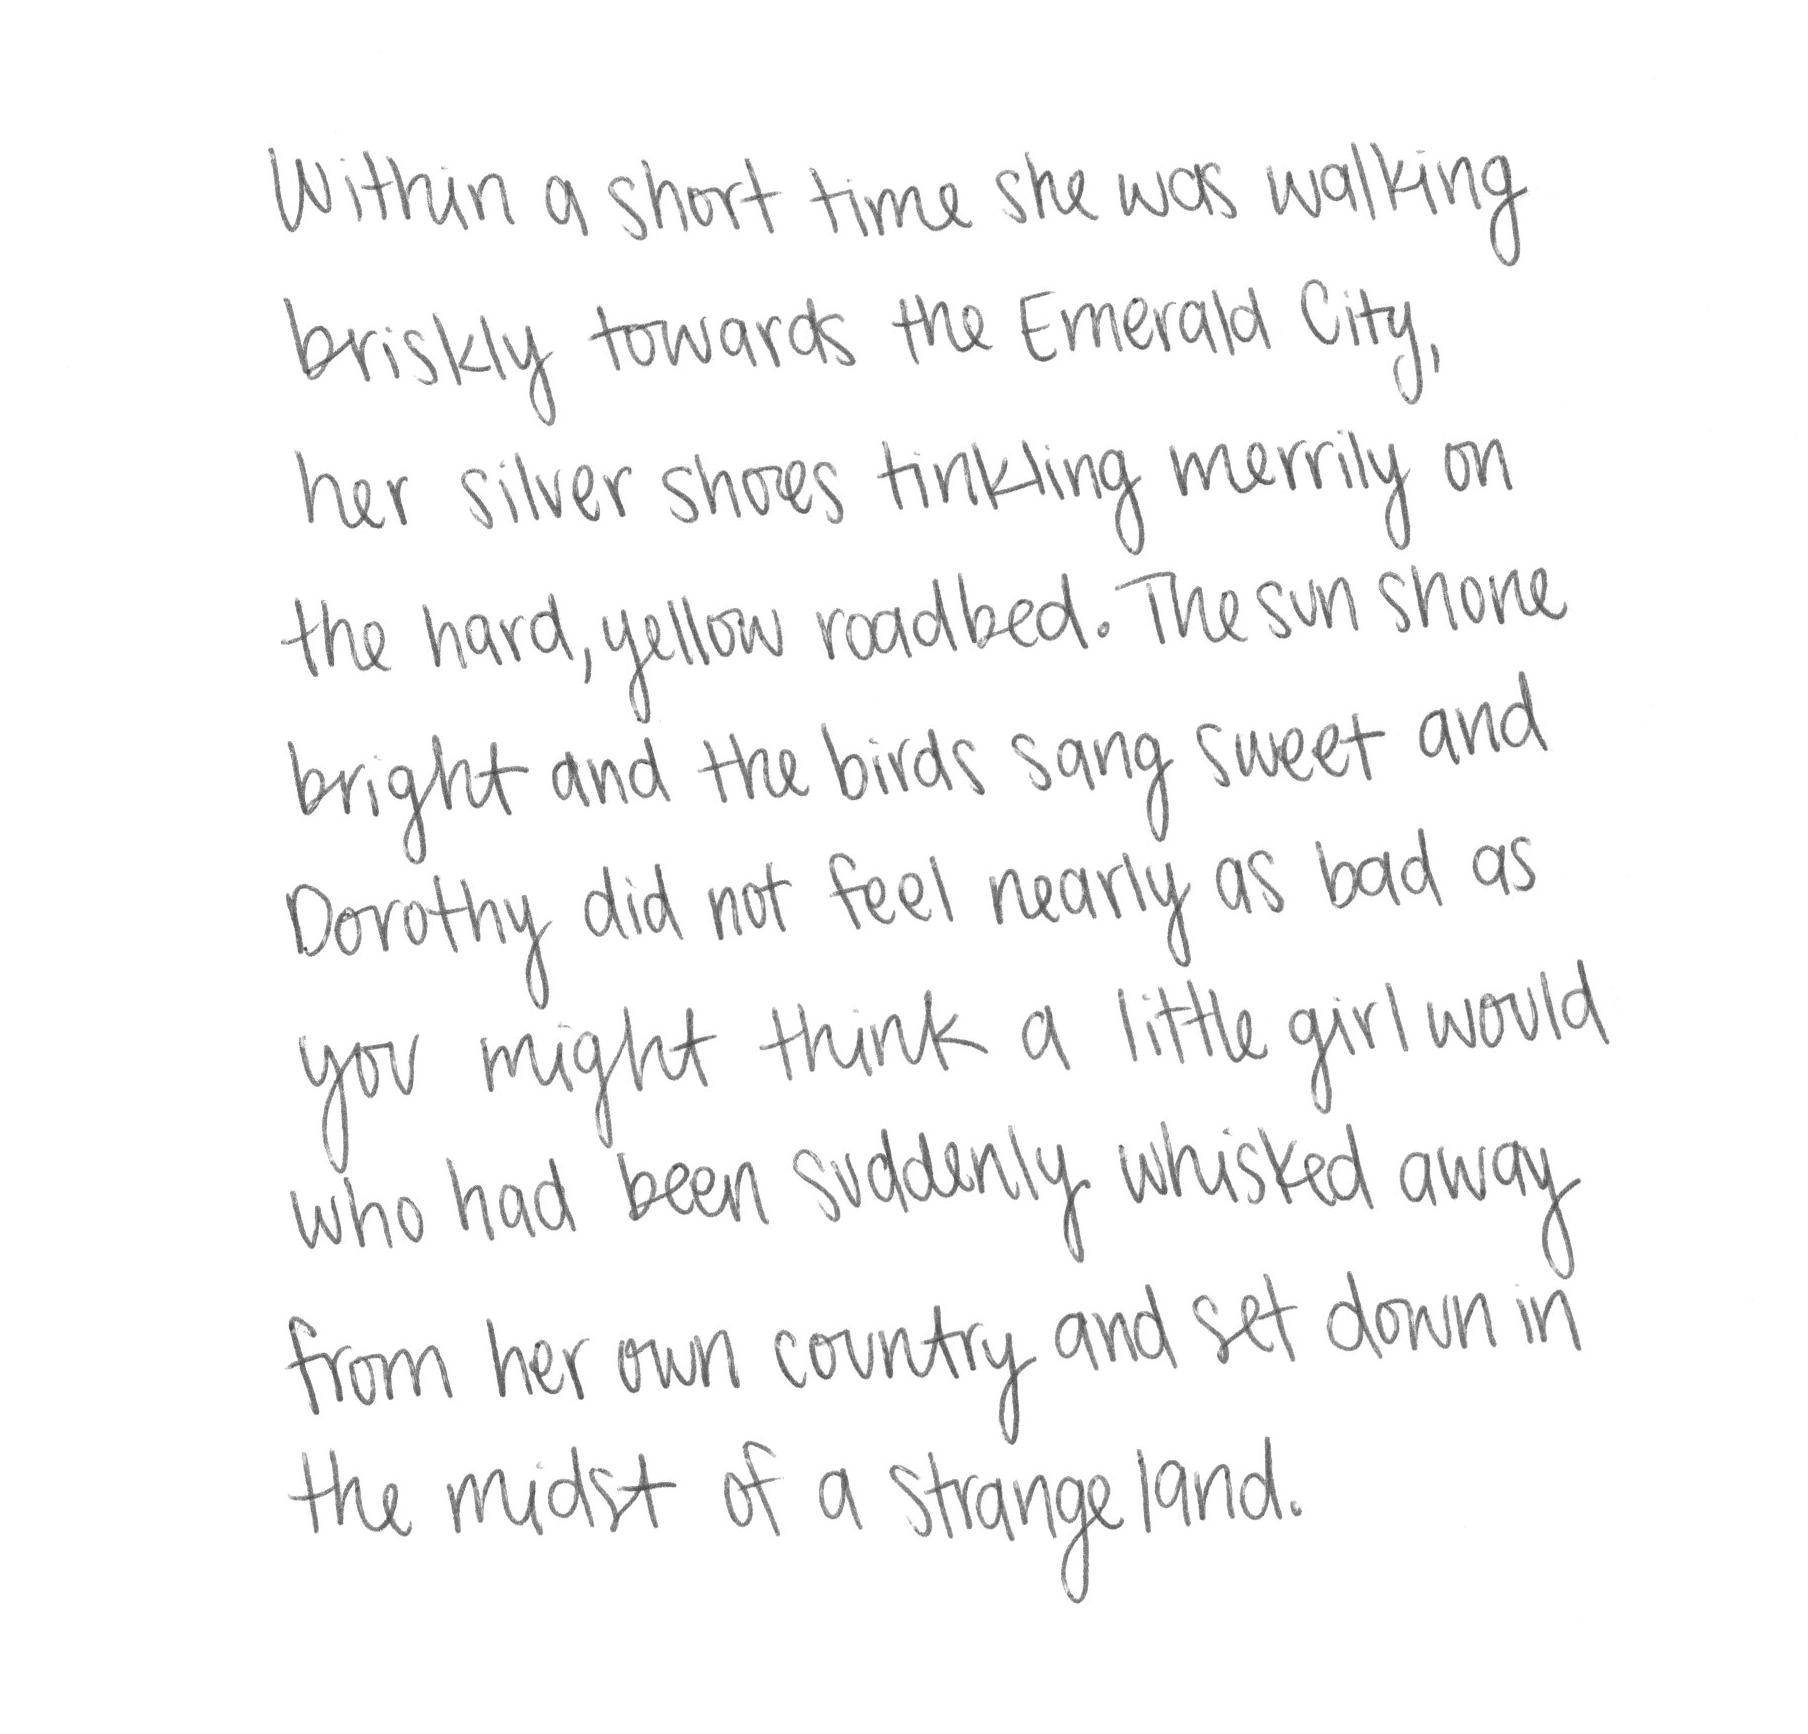 Within a short time she was walking
briskly towards the Emerald City,
her silver shoes tinkling merrily on
the hard, yellow roadbed. The sun shone
bright and the birds sang sweet and
Dorothy did not feel nearly as bad as
you might think a little girl would
who had been suddenly whisked away
from her own country and set down in
the midst of a strange land.